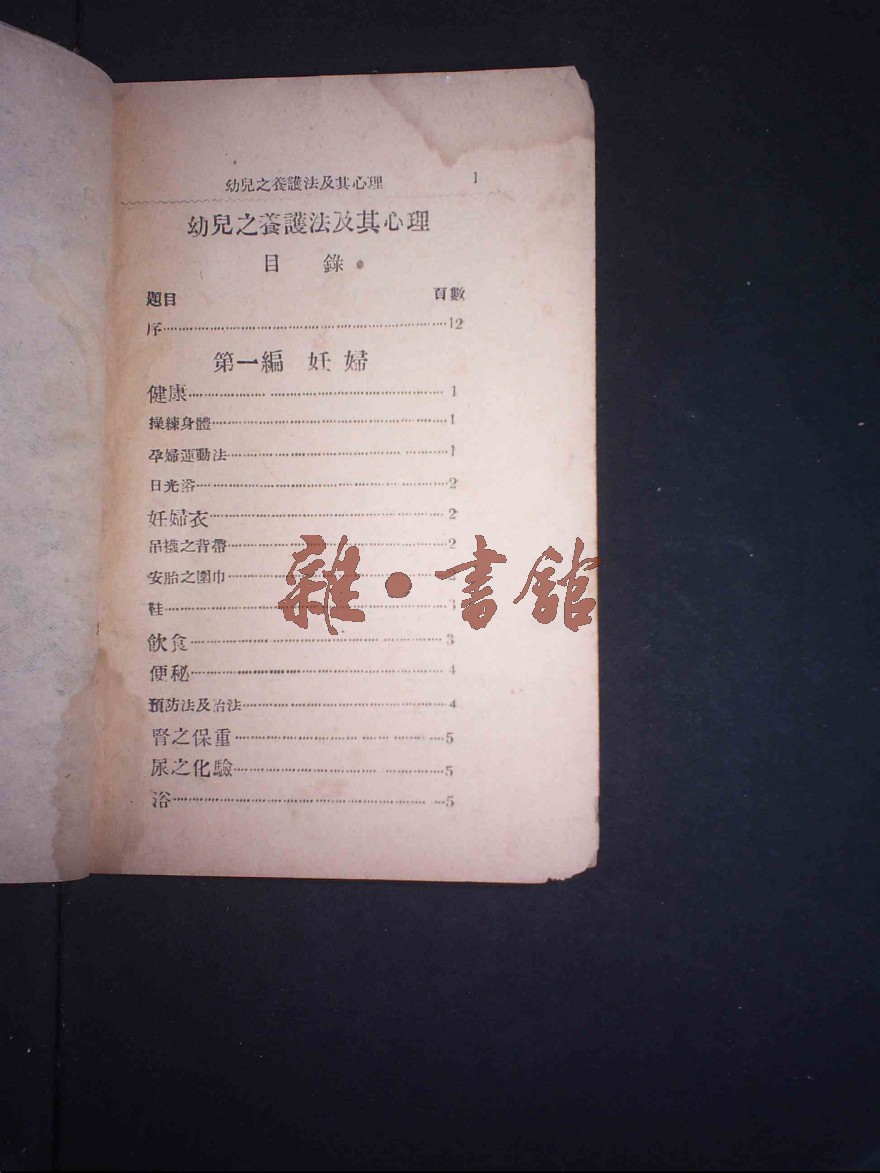 幼兒之養護法及其心理 1
幼兒之養護法及其心理
目 錄
題目 百數
序 12
第一編 妊婦
健康 1
操練身體 1
孕婦運動法 1
日光浴 2
妊婦衣 2
吊襪之背帶 2
安胎之圍巾 2
鞋 3
飲食 3
便秘 4
預防法及治法 4
腎之保重 5
尿之化驗 5
浴 5
雜·書館